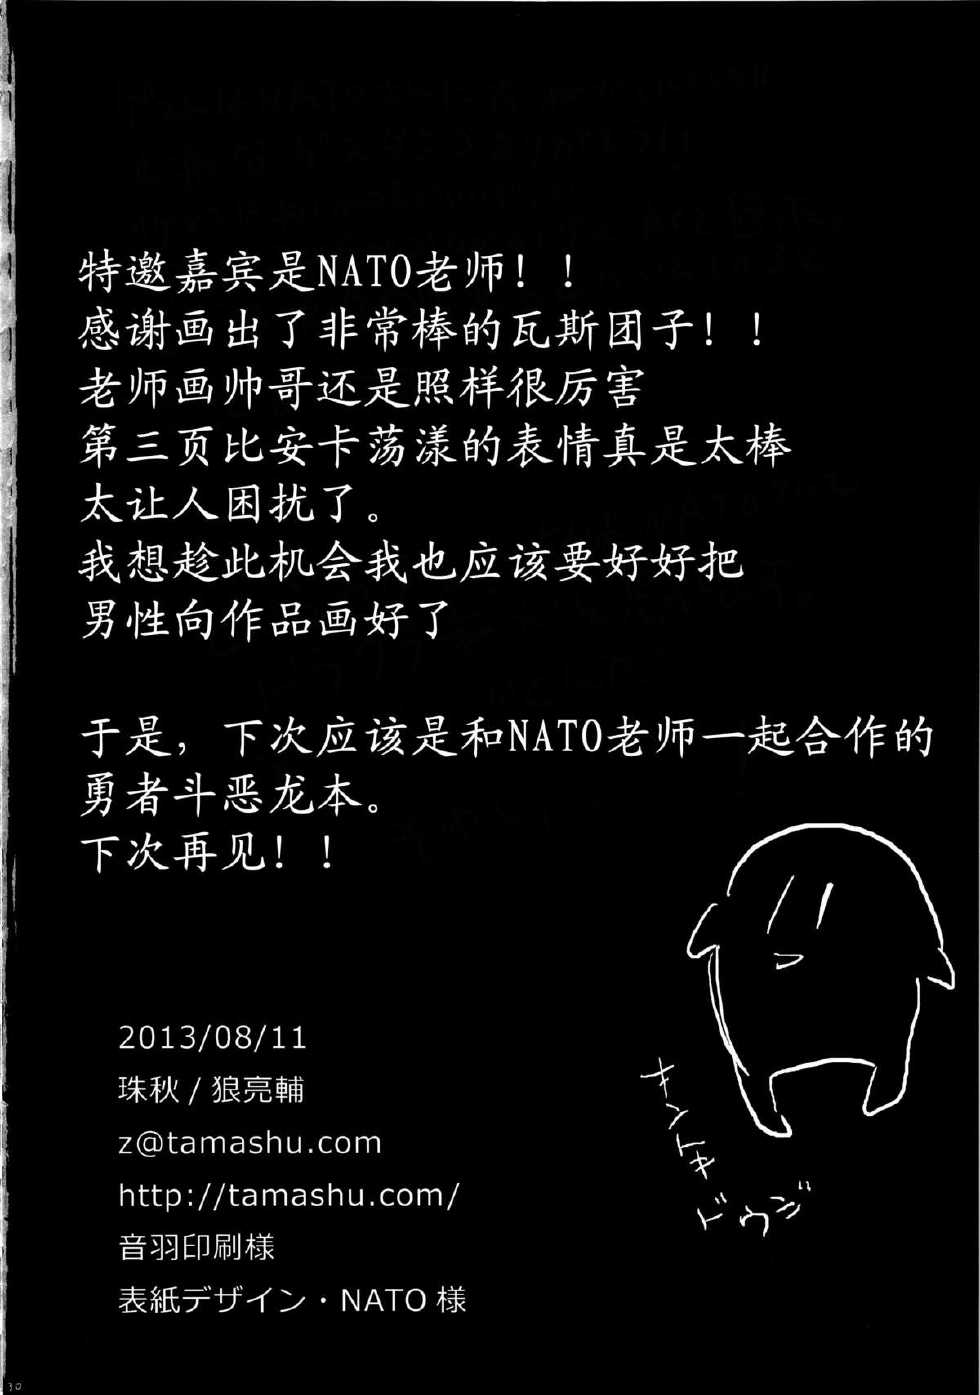 特邀嘉宾是NATO老师！！
感谢画出了非常棒的瓦斯团子！！
老师画帅哥还是照样很厉害
第三页比安卡荡漾的表情真是太棒
太让人困扰了。
我想趁此机会我也应该要好好把
男性向作品画好了
于是，下次应该是和NATO老师一起合作的
勇者斗恶龙本。
下次再见！！
キントキ
ドウジ
2013/08/11
珠秋 / 狼亮輔
z@tamashu.com
http://tamashu.com/
音羽印刷様
表紙デザイン・NATO 様
30